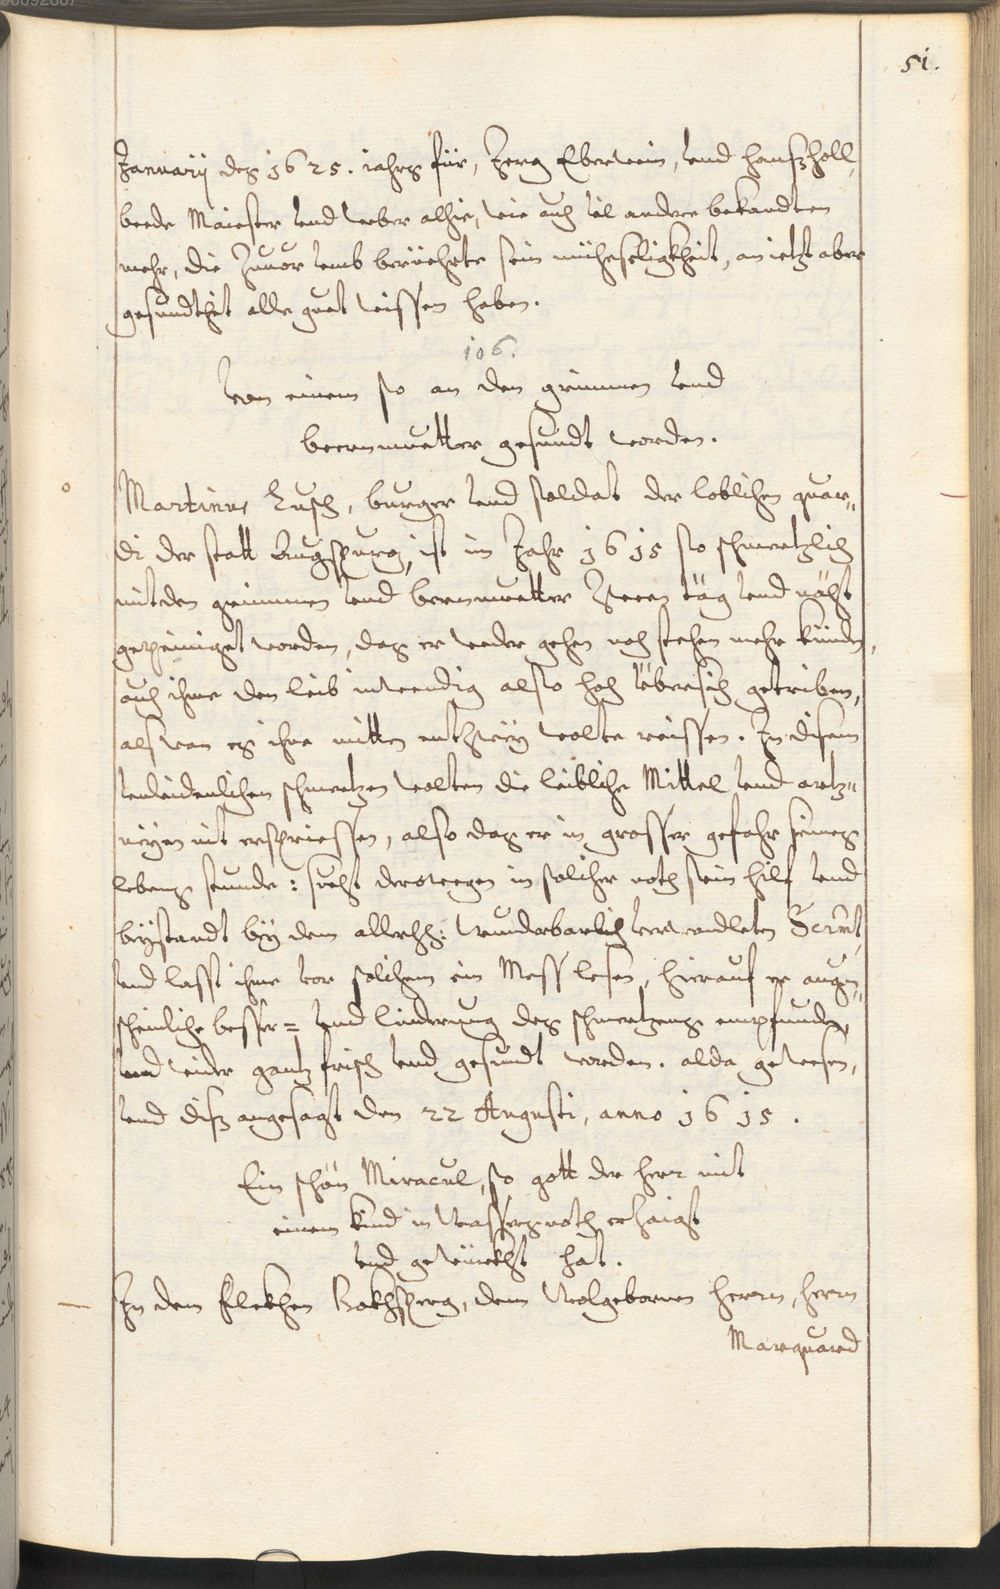 51.
Januarij deß 1625. iahrß für, Jerg Eberwein, vnd hanß holl,
beede Maister vnd weber alhie, wie auch vil andere bekandten
mehr, die Zuuor vmb berüehrte sein müheseligkheit, an ietzt aber
gesundtheit alle guet wissen haben.
106.
Von einem so an den grimmen vnd
beermuetter gesundt worden.
Martinus Lusch, burger vnd soldat der loblichen guar-
di der statt Augspurg, ist im Jahr 1615 so schmertzlich
mit den grimmen vnd beermuetter Zween täg vnd nächt
gepeiniget worden, daß er weder gehen noch stehen mehr künden,
auch ihme den leib inwendig also hoch übersich getriben,
alß wan eß ihne mitten entzwey wolte reissen. In disem
vnleidenlichen schmertzen wolten die leibliche Mittel vnd artz-
neyen nit ersprießen, also daß er in grosser gefahr seineß
lebenß stunde: sucht derowegen in solicher noth sein hilf vnd
beystandt bey dem allerhh: wunderbarlich verwandleten Sacrmt,
vnd lasst ihme vor solichem ein Mess lesen, hierauf er augen-
scheinliche besser= vnd linderung deß schmertzenß empfunden,
vnd wider gantz frisch vnd gesundt worden. alda gewesen,
vnd diß angesagt den 22 Augusti, anno 1615.
Ein schön Miracul, so gott der herr mit
einem kind in wassersnoth erzaigt
vnd gewürckht hat.
In dem fleckhen Bockhsperg, dem Wolgebornen herrn, herrn
Marquard